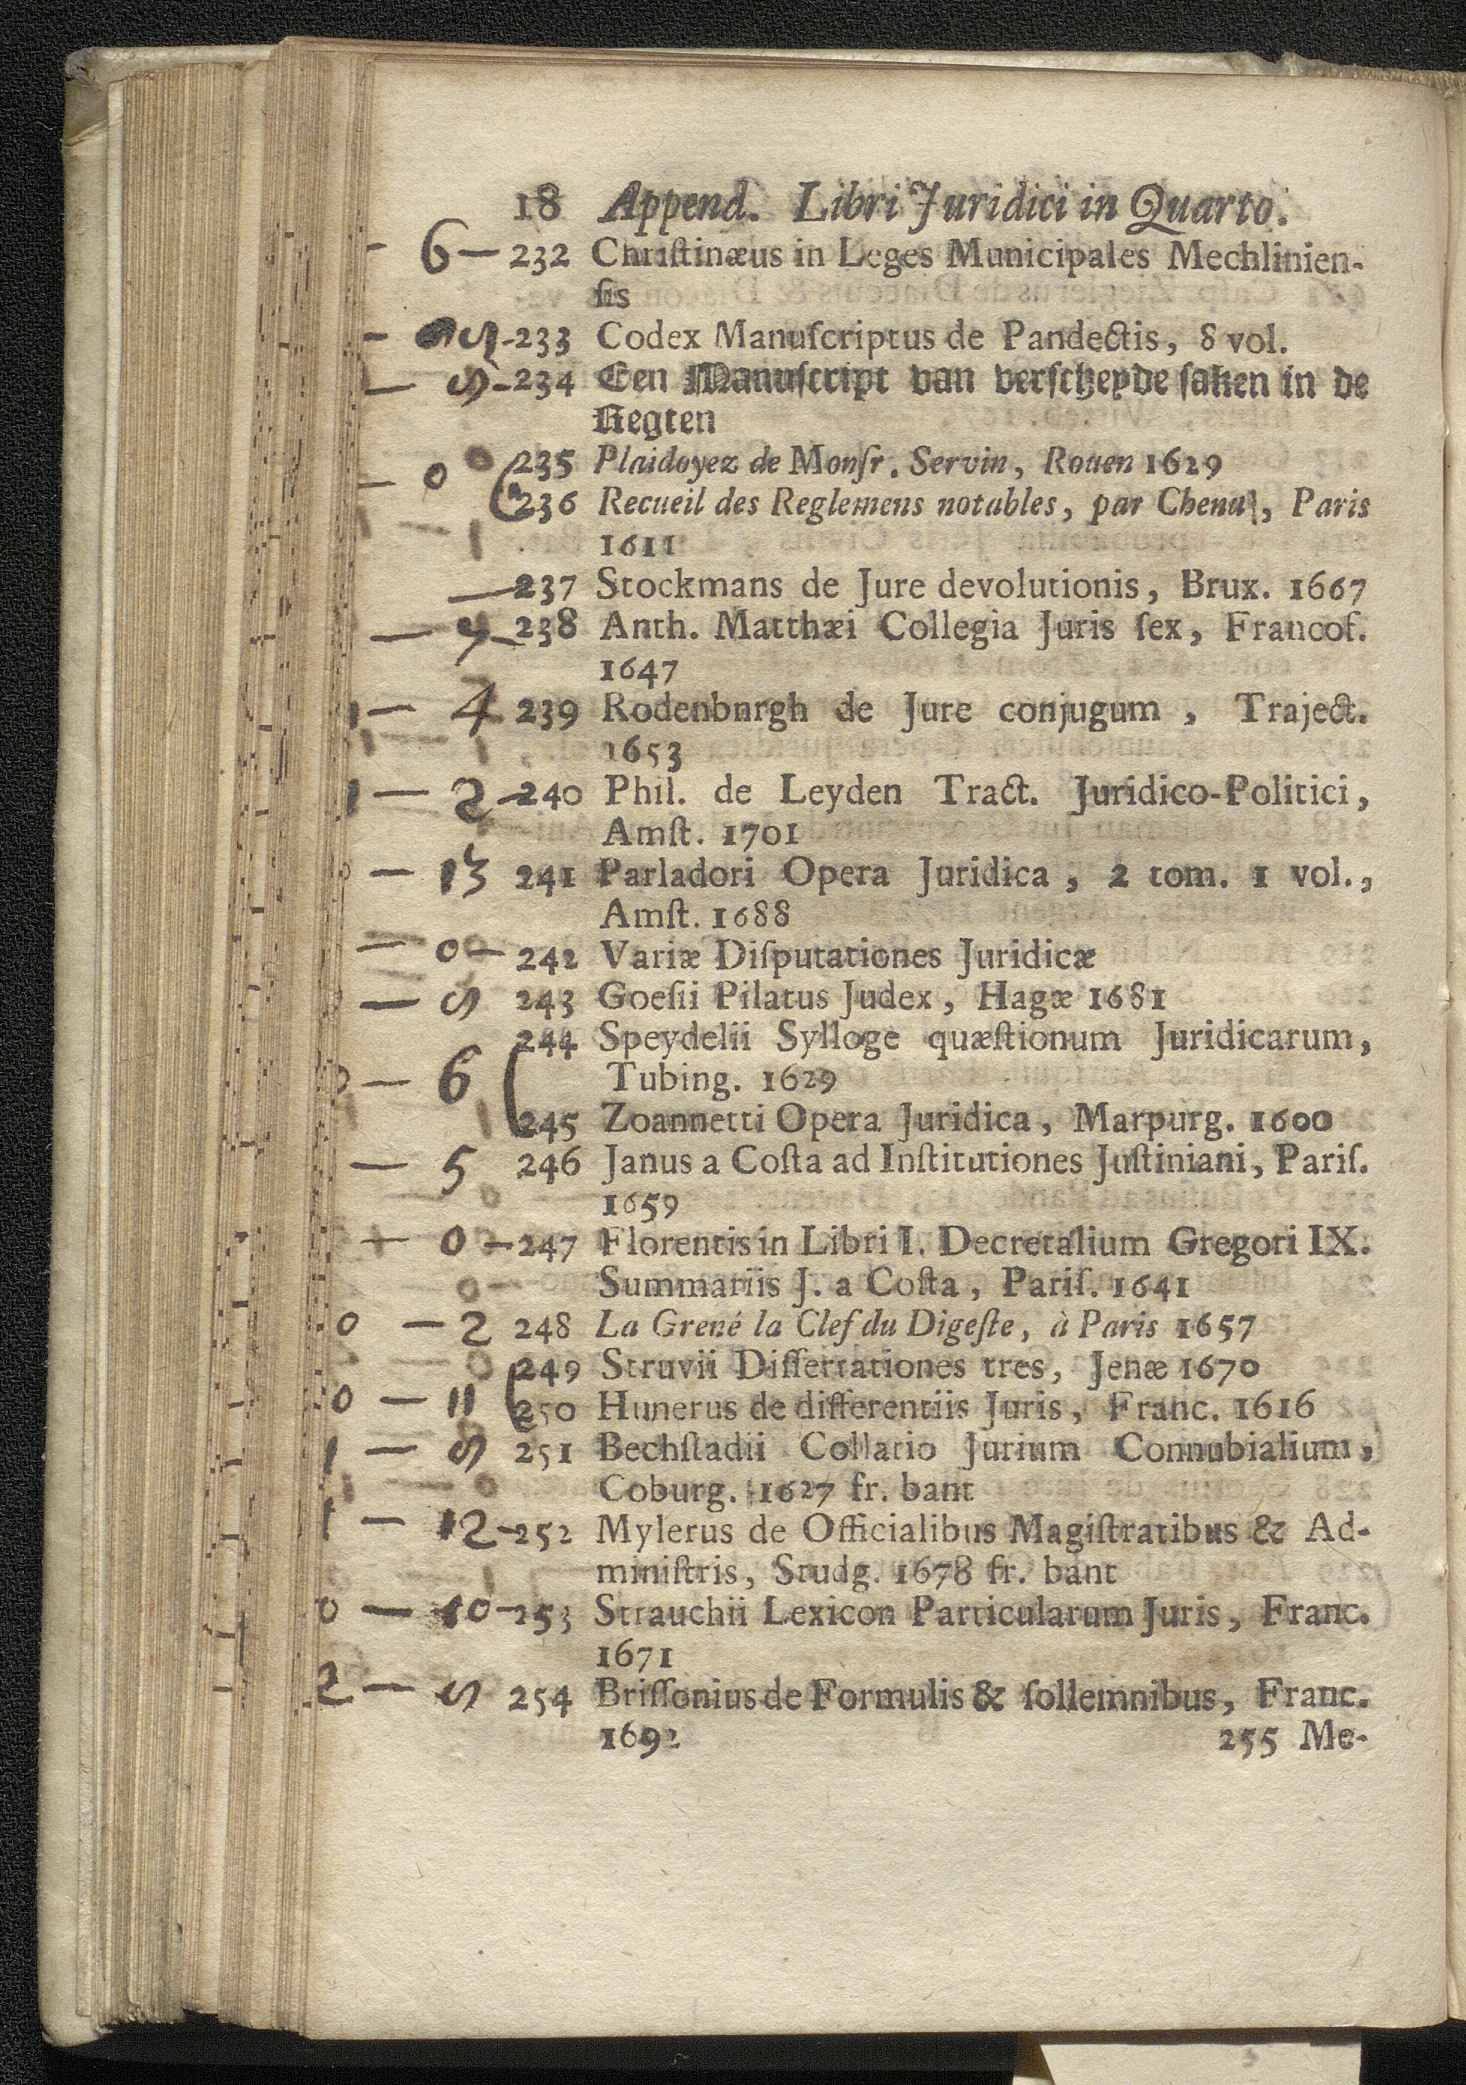 18 Append. Libri Juridici in Quarto.
- 6 - 232 Christinæus in Leges Municipales Mechlinien-
sis
233 Codex Manuscriptus de Pandectis, 8 vol.
234 Een Manuscript van verscheyde saken in de
Regten
235 Plaidoyez de Monsr. Servin, Rouen 1629
- 0
236 Recueil des Reglemens notables, par Chenu, Paris
1611
237 Stockmans de Jure devolutionis, Brux. 1667
238 Anth. Matthæi Collegia Juris sex, Francof.
1647
1 - 4 239 Rodenbnrgh de Jure conjugum, Traject.
1653
1 - 2 - 240 Phil. de Leyden Tract. Juridico-Politici,
Amst. 1701
- 13 241 Parladori Opera Juridica, 2 tom. 1 vol.,
Amst. 1688
- 0 - 242 Variæ Disputationes Juridicæ
243 Goesii Pilatus Judex, Hagæ 1681
244 Speydelii Sylloge quæstionum Juridicarum,
0 - 6 Tubing. 1629
245 Zoannetti Opera Juridica, Marpurg. 1600
- 5 246 Janus a Costa ad Institutiones Justiniani, Paris.
1659
- 0 - 247 Florentis in Libri I. Decretalium Gregori IX.
Summariis J. a Costa, Paris. 1641
0 - 2 248 La Grené la Clef du Digeste, à Paris 1657
249 Struvii Dissertationes tres, Jenæ 1670
0 - 11 250 Hunerus de differentiis Juris, Franc. 1616
1 - 251 Bechstadii Collatio Jurium Connubialium,
Coburg. 1627 fr. bant
1 - 12 - 252 Mylerus de Officialibus Magistratibus & Ad-
ministris, Studg. 1678 fr. bant
0 - 10 - 253 Strauchii Lexicon Particularum Juris, Franc.
1671
2 - 254 Brissonius de Formulis & sollemnibus, Franc.
1692 255 Me-